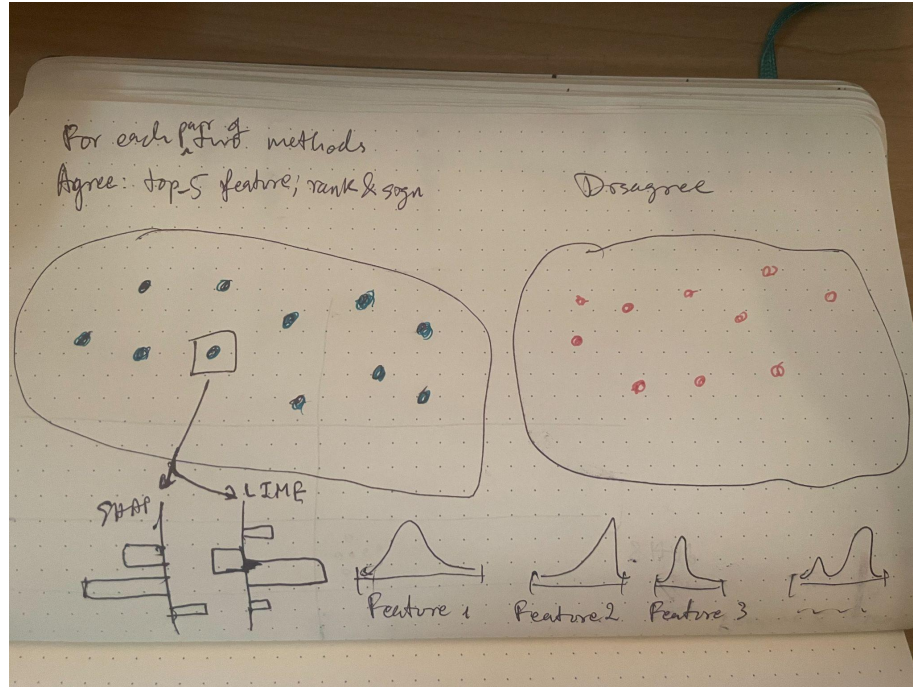 For each pair of methods
Agree: top-5 feature; rank & sign
Disagree
SHAP
LIME
Feature 1
Feature 2
Feature 3